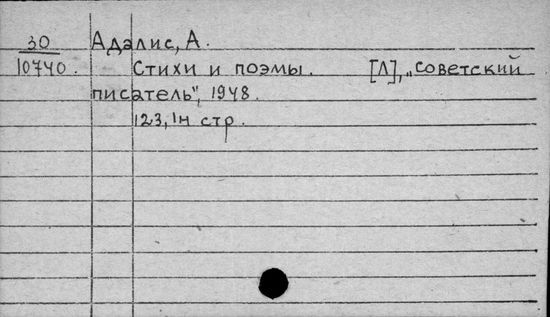 30 Адалис, А.
10740. Стихи и поэмы. [Л], „Советский
писатель", 1948.
123, 1н стр.